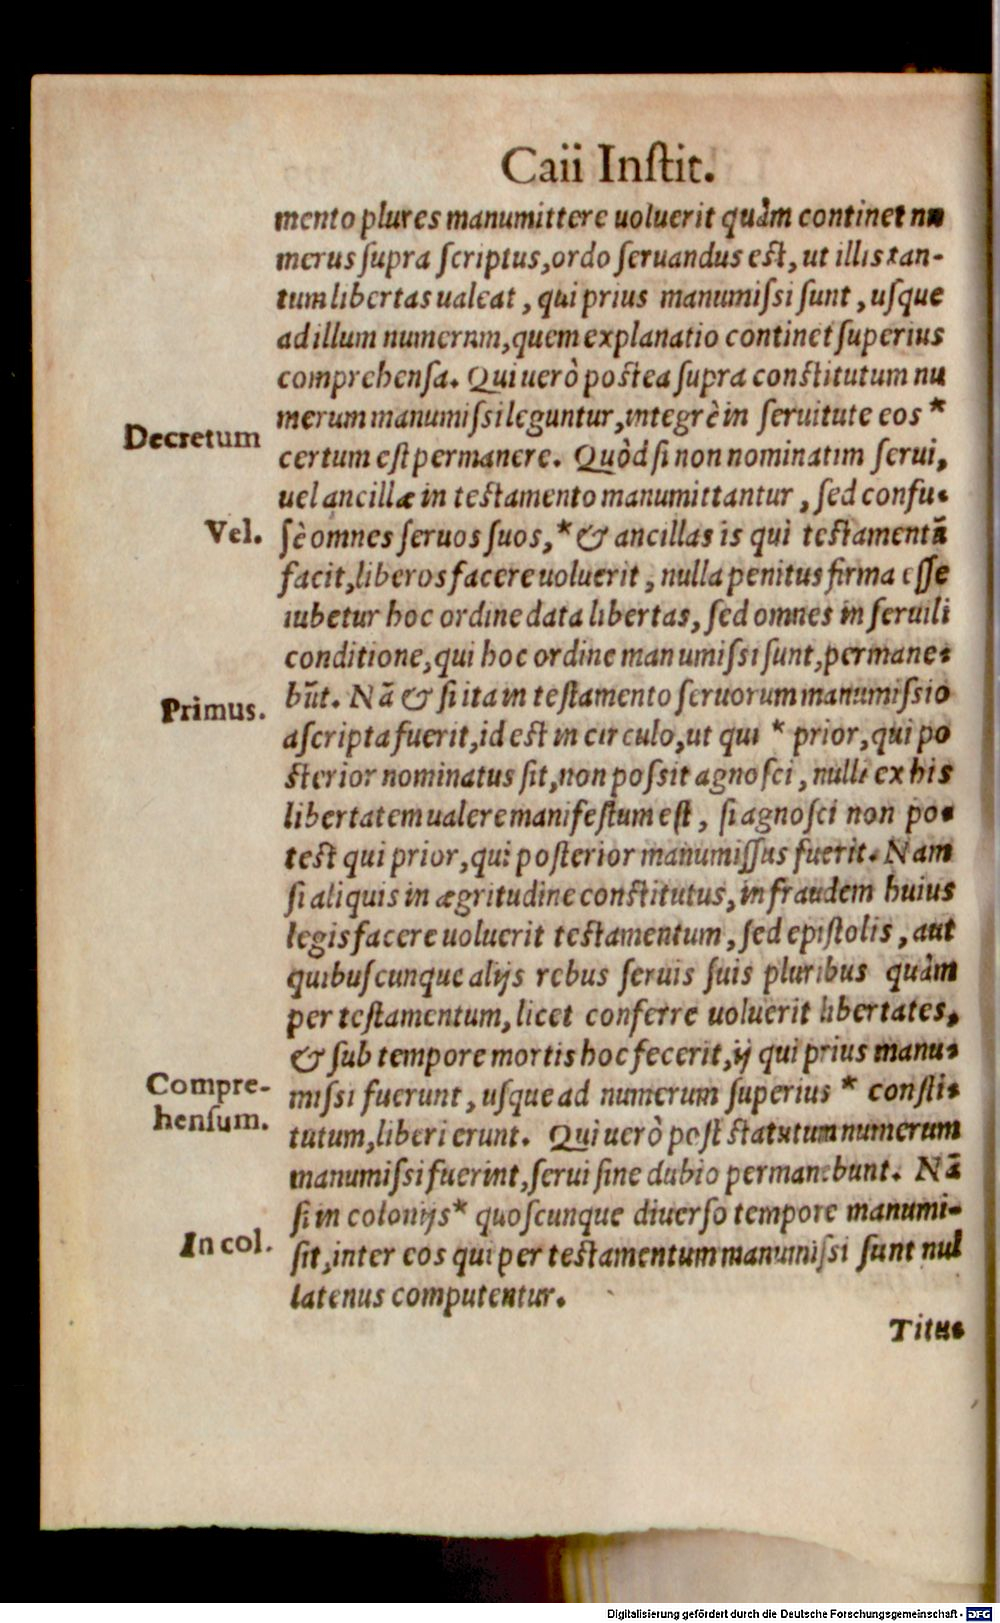 Caii Instit.
mento plures manumittere uoluerit quàm continet nu
merus supra scriptus, ordo seruandus est, ut illis tan-
tum libertas ualeat, qui prius manumissi sunt, usque
ad illum numerum, quem explanatio continet superius
comprehensa. Qui uerò postea supra constitutum nu
merum manumissi leguntur, integrè in seruitute eos *
Decretum
certum est permanere. Quòd si non nominatim serui,
uel ancillæ in testamento manumittantur, sed confu-
Vel.
sè omnes seruos suos, * & ancillas is qui testamentũ
facit, liberos facere uoluerit, nulla penitus firma esse
iubetur hoc ordine data libertas, sed omnes in seruili
conditione, qui hoc ordine manumissi sunt, permane-
bũt. Nã & si ita in testamento seruorum manumissio
Primus.
ascripta fuerit, id est in circulo, ut qui * prior, qui po
sterior nominatus sit, non possit agnosci, nulli ex his
libertatem ualere manifestum est, si agnosci non po-
test qui prior, qui posterior manumissus fuerit. Nam
si aliquis in ægritudine constitutus, in fraudem huius
legis facere uoluerit testamentum, sed epistolis, aut
quibuscunque alijs rebus seruis suis pluribus quàm
per testamentum, licet conferre uoluerit libertates,
& sub tempore mortis hoc fecerit, ij qui prius manu-
Compre-
missi fuerunt, usque ad numerum superius * consti-
hensum.
tutum, liberi erunt. Qui uerò post statutum numerum
manumissi fuerint, serui sine dubio permanebunt. Nã
si in colonijs * quoscunque diuerso tempore manumi-
In col.
sit, inter eos qui per testamentum manumissi sunt nul
latenus computentur.
Titu-
Digitalisierung gefördert durch die Deutsche Forschungsgemeinschaft - DFG